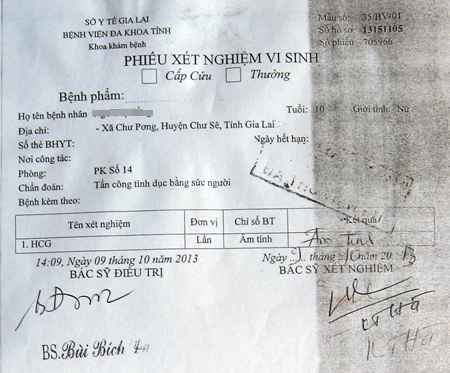 SỞ Y TẾ GIA LAI
BỆNH VIỆN ĐA KHOA TỈNH
Khoa khám bệnh
Mẫu số: 35/BV-01
Số hồ sơ: 13151105
Số phiếu: 705966
PHIẾU XÉT NGHIỆM VI SINH
Cấp Cứu Thường
Bệnh phẩm:
Họ tên bệnh nhân Tuổi: 10 Giới tính: Nữ
Địa chỉ: - Xã Chư Pơng, Huyện Chư Sê, Tỉnh Gia Lai
Số thẻ BHYT: Ngày hết hạn:
Nơi công tác:
Phòng: PK Số 14
Chẩn đoán: Tấn công tình dục bằng sức người
Bệnh kèm theo:
Tên xét nghiệm Đơn vị Chỉ số BT Kết quả
1. HCG Lần Âm tính Âm tính
14:09, Ngày 09 tháng 10 năm 2013 Ngày 9 tháng 10 năm 2013
BÁC SỸ ĐIỀU TRỊ BÁC SỸ XÉT NGHIỆM
BS. Bùi Bích